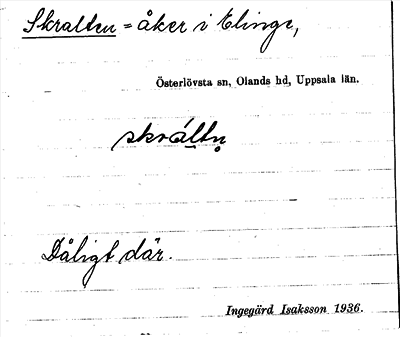 Skralten = åker i Elinge,
Österlövsta sn, Olands hd, Uppsala län.
skráltn̥
Dåligt där.
Ingegärd Isaksson 1936.